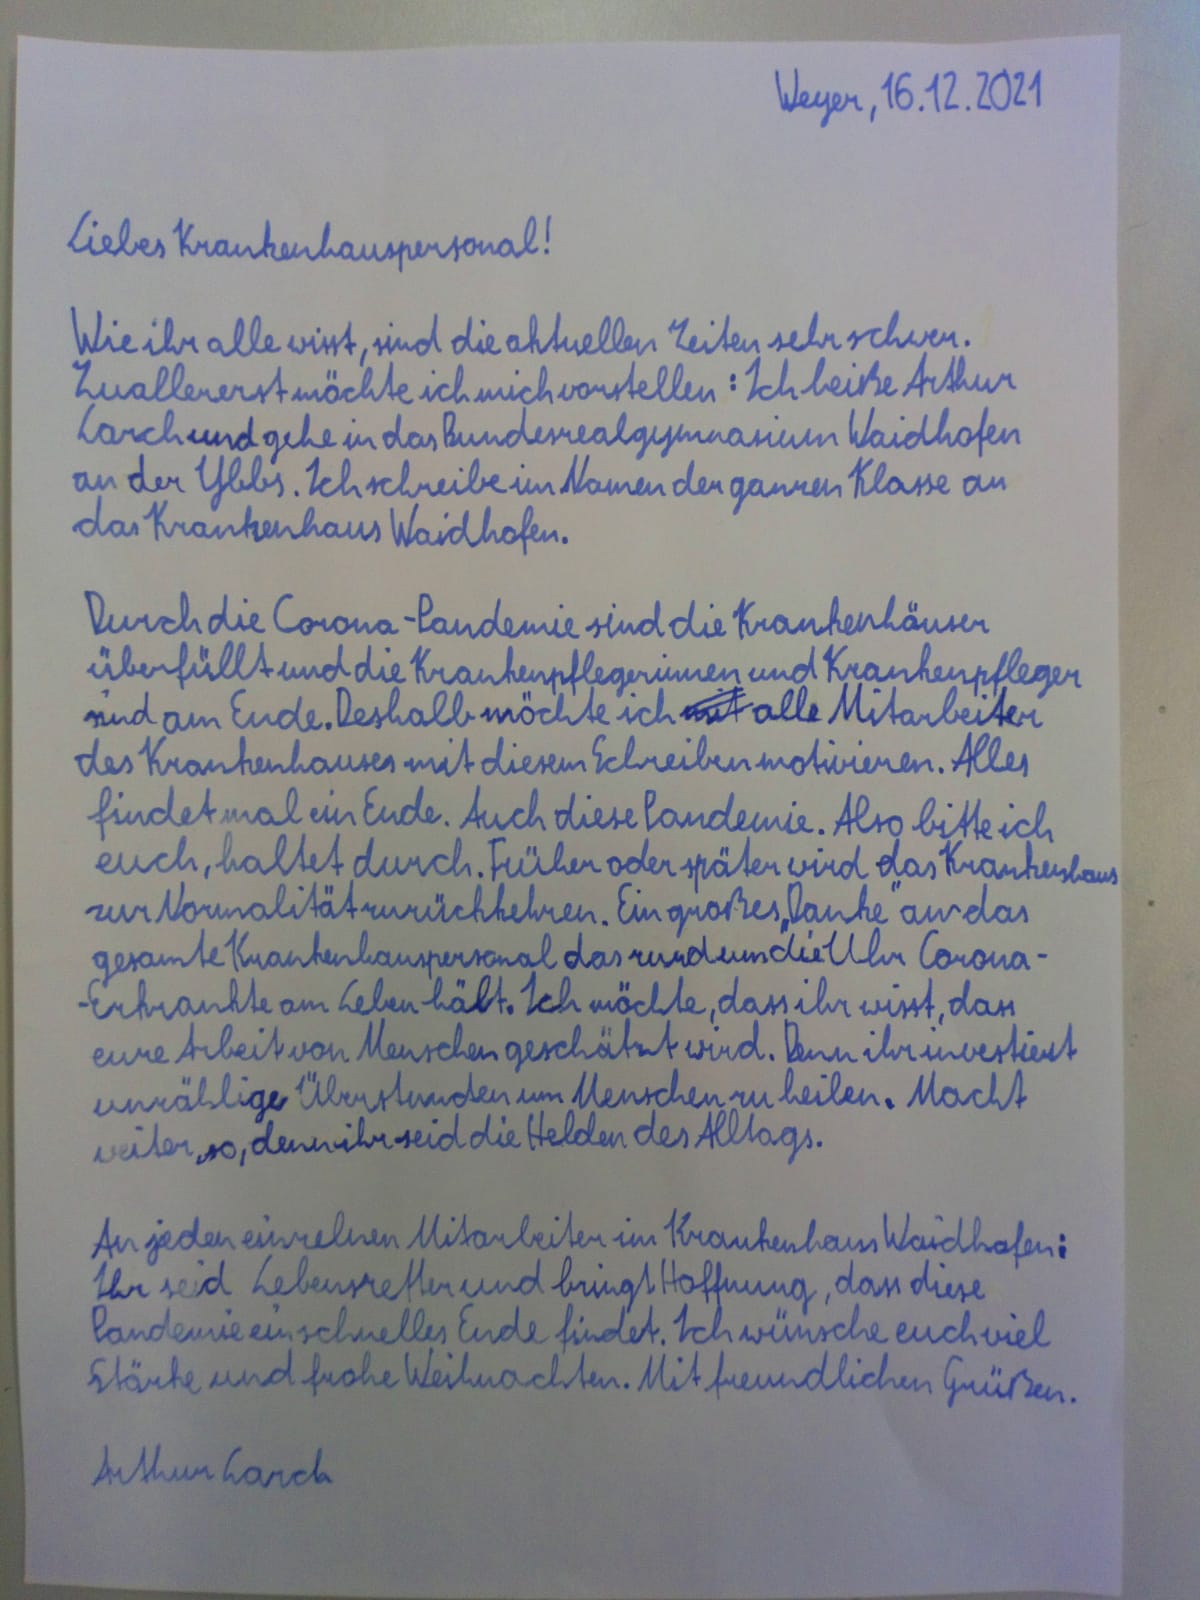 Weyer, 16.12.2021
Liebes Krankenhauspersonal!
Wie ihr alle wisst, sind die aktuellen Zeiten sehr schwer.
Zuallererst möchte ich mich vorstellen: Ich heiße Arthur
Larch und gehe in das Bundesrealgymnasium Waidhofen
an der Ybbs. Ich schreibe im Namen der ganzen Klasse an
das Krankenhaus Waidhofen.
Durch die Corona-Pandemie sind die Krankenhäuser
überfüllt und die Krankenpflegerinnen und Krankenpfleger
sind am Ende. Deshalb möchte ich alle Mitarbeiter
des Krankenhauses mit diesem Schreiben motivieren. Alles
findet mal ein Ende. Auch diese Pandemie. Also bitte ich
euch, haltet durch. Früher oder später wird das Krankenhaus
zur Normalität zurückkehren. Ein großes „Danke" an das
gesamte Krankenhauspersonal das rund um die Uhr Corona-
-Erkrankte am Leben hält. Ich möchte, dass ihr wisst, dass
eure Arbeit von Menschen geschätzt wird. Denn ihr investiert
unzählige Überstunden um Menschen zu heilen. Macht
weiter so, denn ihr seid die Helden des Alltags.
An jeden einzelnen Mitarbeiter im Krankenhaus Waidhofen:
Ihr seid Lebensretter und bringt Hoffnung, dass diese
Pandemie ein schnelles Ende findet. Ich wünsche euch viel
Stärke und frohe Weihnachten. Mit freundlichen Grüßen.
Arthur Larch